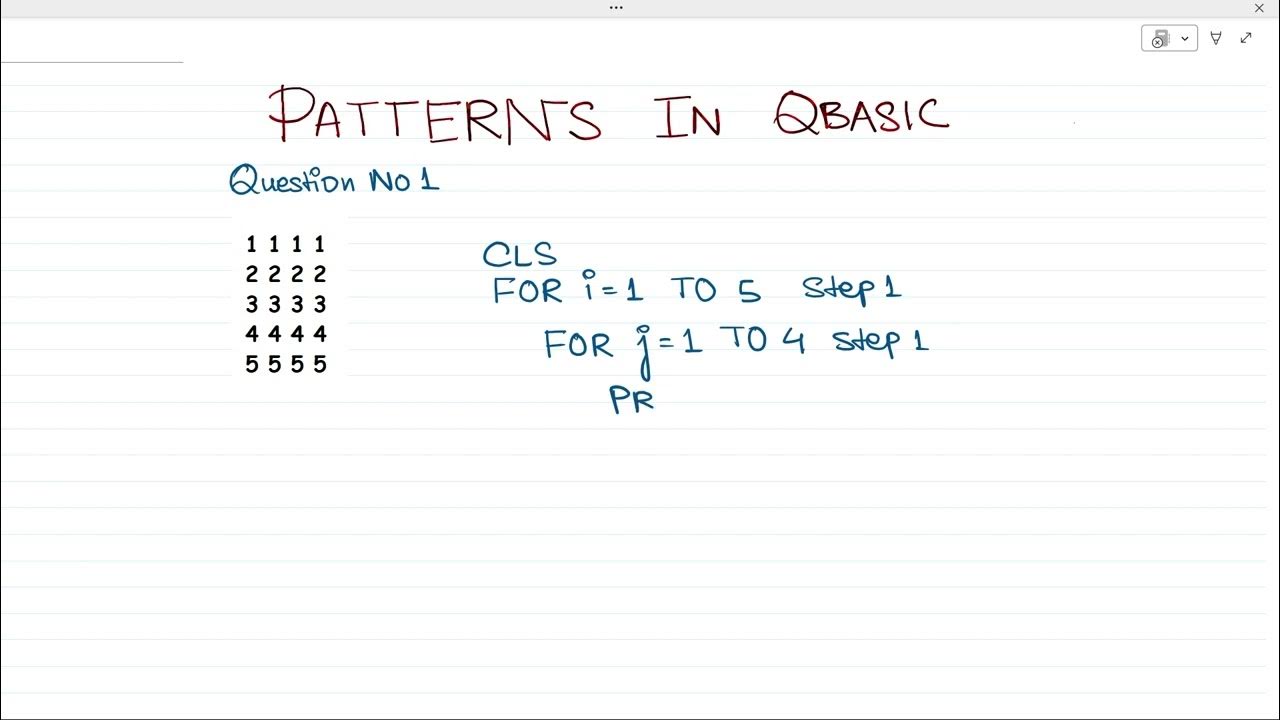 PATTERNS IN QBASIC
Question No 1
1 1 1 1
2 2 2 2
3 3 3 3
4 4 4 4
5 5 5 5
CLS
FOR i = 1 TO 5 Step 1
FOR j = 1 TO 4 Step 1
PR